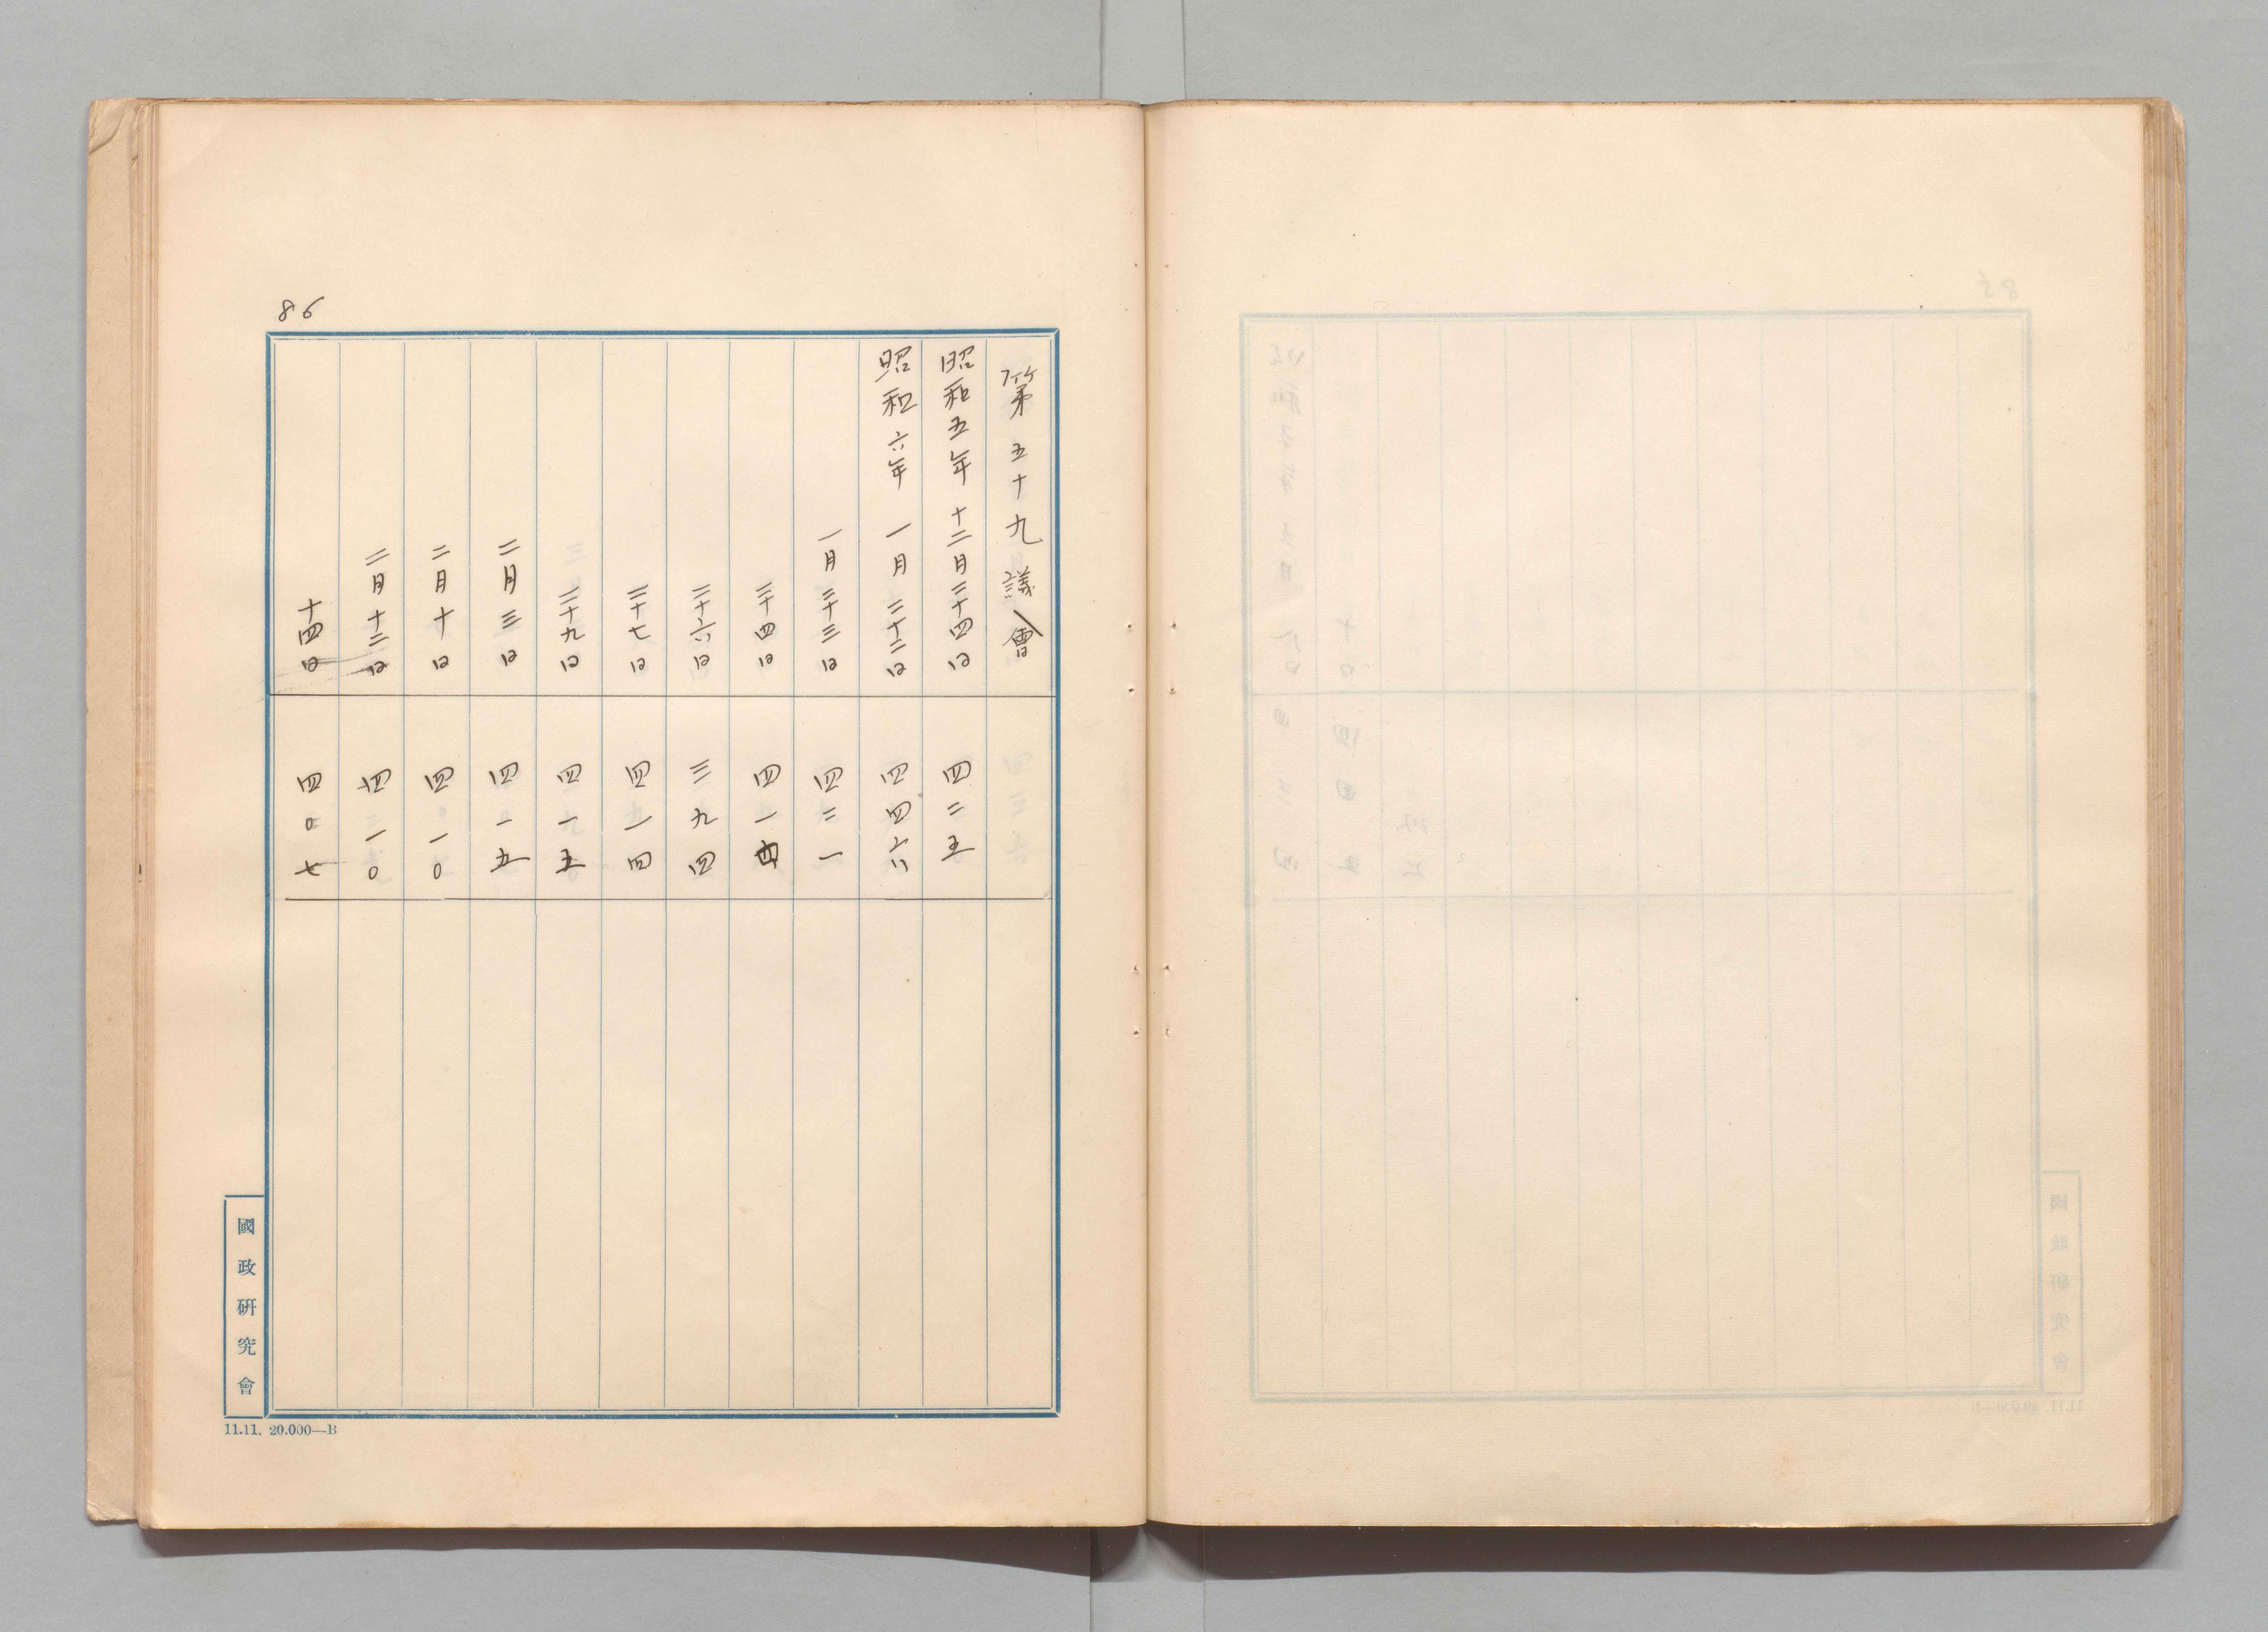 86
第五十九議會
昭和五年十二月二十四日 四二五
昭和六年一月二十二日 四四六
一月二十三日 四二一
二十四日 四一四
二十六日 三九四
二十七日 四一四
二十九日 四一五
二月三日 四一五
二月十日 四一〇
二月十二日 四一〇
十四日 四〇七
國政研究會
11.11. 20.000—B